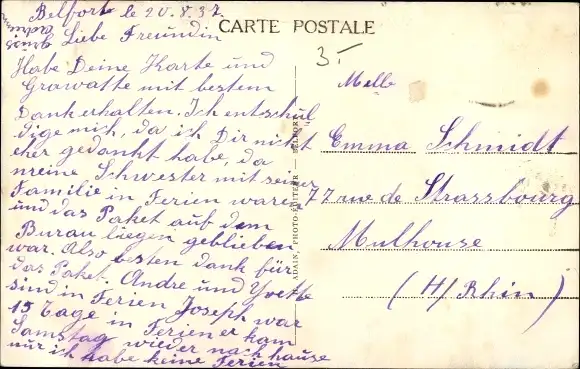 CARTE POSTALE
Belfort le 20.8.37
Liebe Freundin
Habe Deine Karte und
Growatte mit bestem
Dank erhalten. Ich entschul
dige mich, da ich Dir nicht
eher gedankt habe, da
meine Schwester mit seiner
Familie in Ferien waren
und das Paket auf dem
Burau liegen geblieben
war. Also besten dank für
das Paket. Andre und Yvette
sind in Ferien Joseph war
15 Tage in Ferien er kam
Samstag wieder nach hause
nur ich habe keine Ferien
3.-
Melle
Emma Schmidt
77 rue de Strassbourg
Mulhouse
(H/Rhin)
PHOTO-EDITEUR BELFORT